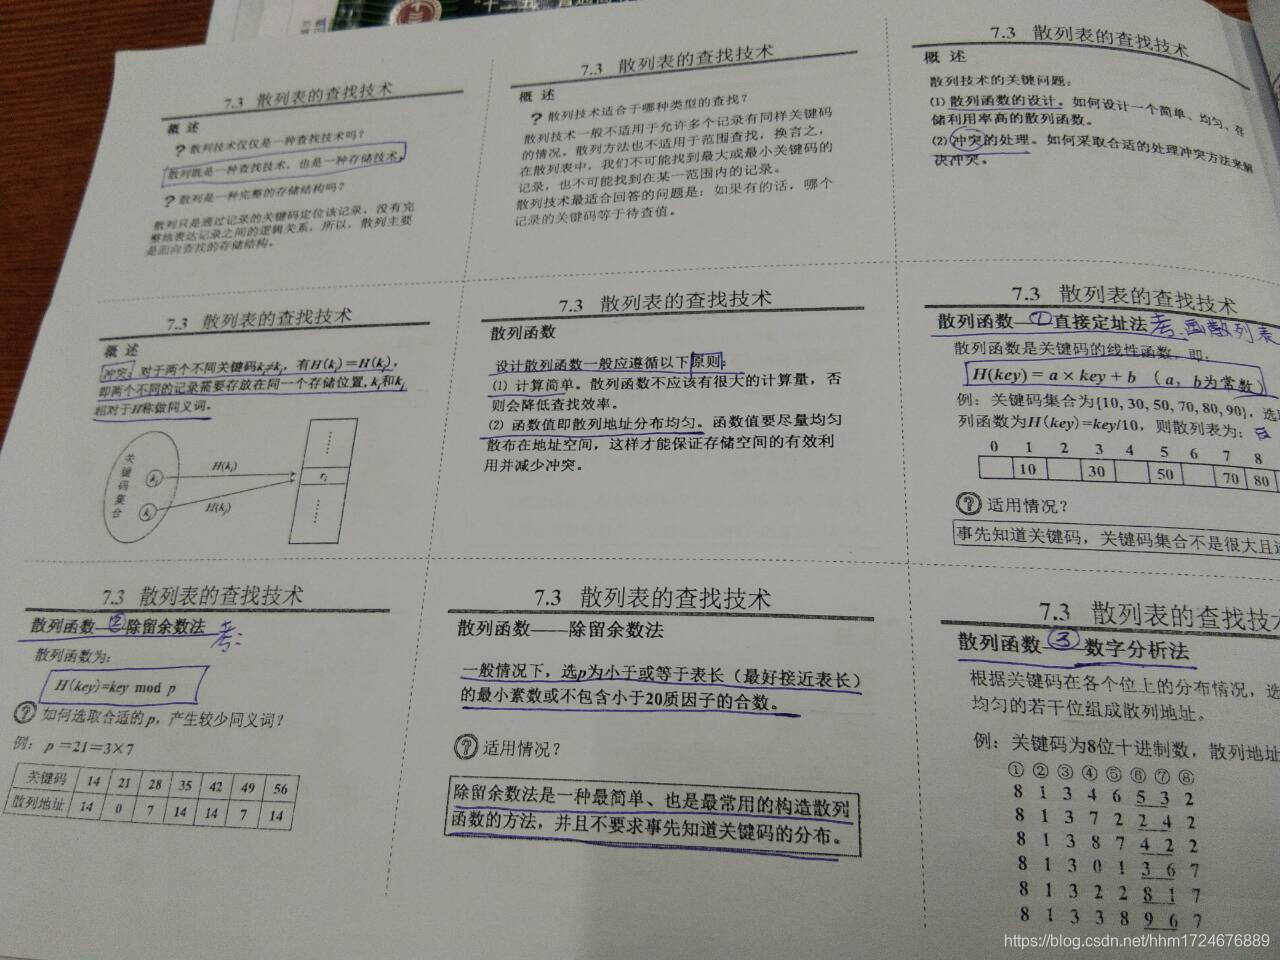 "十二五"普通高
7.3 散列表的查找技术
概 述
? 散列技术仅仅是一种查找技术吗？
散列既是一种查找技术，也是一种存储技术。
? 散列是一种完整的存储结构吗？
散列只是通过记录的关键码定位该记录，没有完
整地表达记录之间的逻辑关系，所以，散列主要
是面向查找的存储结构。
7.3 散列表的查找技术
概 述
? 散列技术适合于哪种类型的查找？
散列技术一般不适用于允许多个记录有同样关键码
的情况。散列方法也不适用于范围查找，换言之，
在散列表中，我们不可能找到最大或最小关键码的
记录，也不可能找到在某一范围内的记录。
散列技术最适合回答的问题是：如果有的话，哪个
记录的关键码等于待查值。
7.3 散列表的查找技术
概 述
散列技术的关键问题：
⑴ 散列函数的设计。如何设计一个简单、均匀、存
储利用率高的散列函数。
⑵ 冲突的处理。如何采取合适的处理冲突方法来解
决冲突。
7.3 散列表的查找技术
概 述
冲突：对于两个不同关键码ki≠kj，有H(ki)＝H(kj)，
即两个不同的记录需要存放在同一个存储位置，ki和kj
相对于H称做同义词。
关键码集合
ki
kj
H(ki)
H(kj)
ri
7.3 散列表的查找技术
散列函数
设计散列函数一般应遵循以下原则：
⑴ 计算简单。散列函数不应该有很大的计算量，否
则会降低查找效率。
⑵ 函数值即散列地址分布均匀。函数值要尽量均匀
散布在地址空间，这样才能保证存储空间的有效利
用并减少冲突。
7.3 散列表的查找技术
散列函数——①直接定址法 考：画散列表
散列函数是关键码的线性函数，即：
H(key) = a × key + b （a，b为常数）
例：关键码集合为{10, 30, 50, 70, 80, 90}，选
列函数为H(key)=key/10，则散列表为：
0 1 2 3 4 5 6 7 8
10 30 50 70 80
? 适用情况？
事先知道关键码，关键码集合不是很大且
7.3 散列表的查找技术
散列函数——②除留余数法 考：
散列函数为：
H(key)=key mod p
? 如何选取合适的p，产生较少同义词？
例：p =21=3×7
关键码 14 21 28 35 42 49 56
散列地址 14 0 7 14 14 7 14
7.3 散列表的查找技术
散列函数——除留余数法
一般情况下，选p为小于或等于表长（最好接近表长）
的最小素数或不包含小于20质因子的合数。
? 适用情况？
除留余数法是一种最简单、也是最常用的构造散列
函数的方法，并且不要求事先知道关键码的分布。
7.3 散列表的查找技术
散列函数 ③ 数字分析法
根据关键码在各个位上的分布情况，选
均匀的若干位组成散列地址。
例：关键码为8位十进制数，散列地址
① ② ③ ④ ⑤ ⑥ ⑦ ⑧
8 1 3 4 6 5 3 2
8 1 3 7 2 2 4 2
8 1 3 8 7 4 2 2
8 1 3 0 1 3 6 7
8 1 3 2 2 8 1 7
8 1 3 3 8 9 6 7
https://blog.csdn.net/hhm1724676889